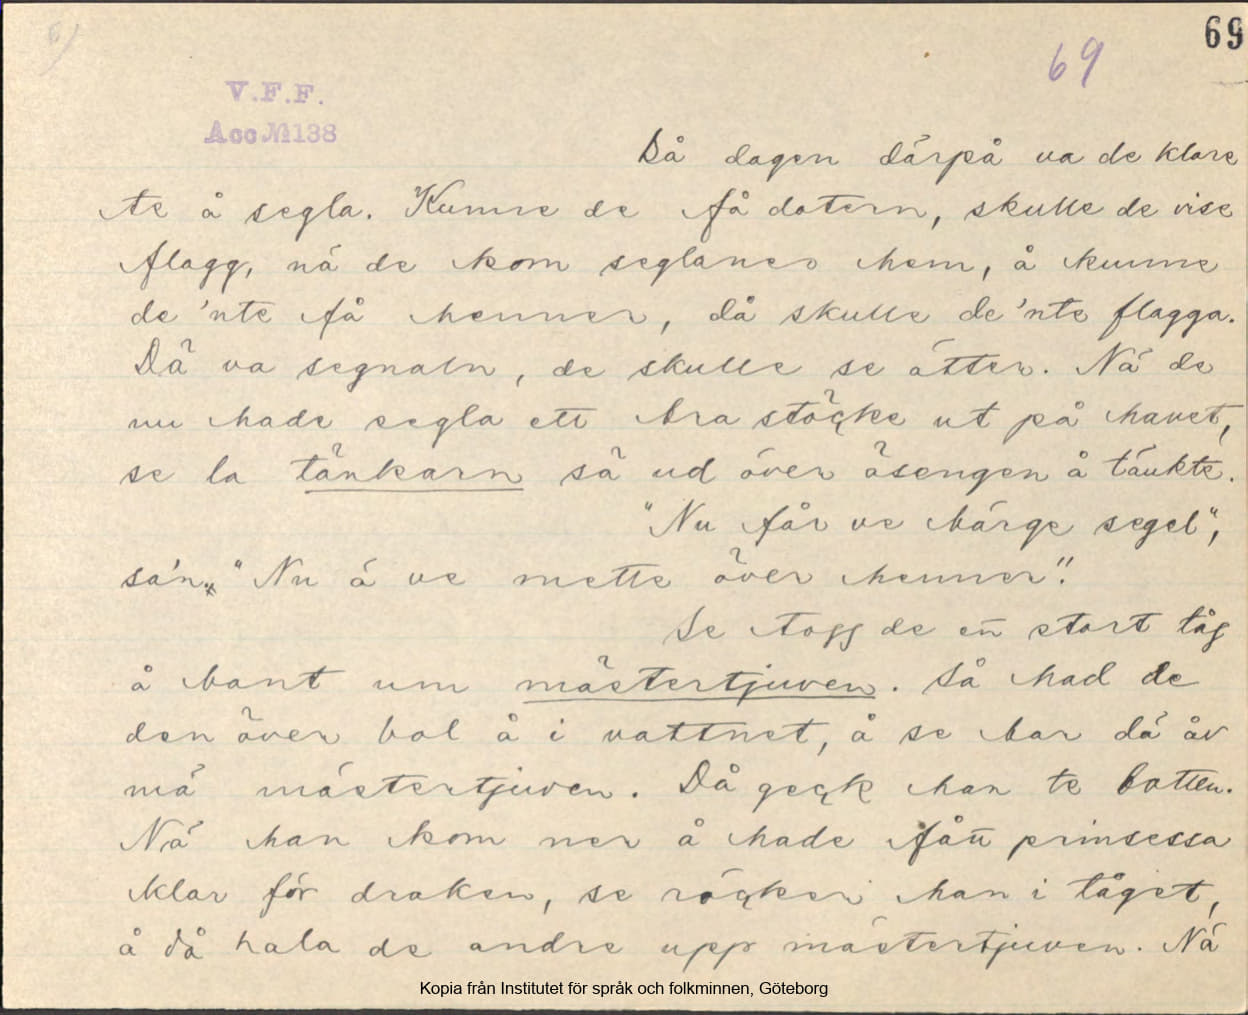 69
69
V.F.F.
Acc № 138
Då dagen därpå va de klare
te å segla. Kunne de få dotern, skulle de vise
flagg, nä de kom seglanes hem, å kunne
de 'nte få henner, då skulle de 'nte flagga.
Dä va segnaln, de skulle se ätter. Nä de
nu hade segla ett bra stöcke ut på havet,
se la tänkarn sä ud över äsengen å täukte.
"Nu får ve bärge segel",
sa'n. "Nu ä ve mette över henner".
Se togg de en stort tåg
å bant um mästertjuven. Så had de
den över bol å i vattnet, å se bar dä åv
mä mästertjuven. Då geck han te botten.
Nä han kom ner å hade fån prinsessa
klar för draken, se röcker han i tåget,
å då hala de andre upp mästertjuven. Nä
Kopia från Institutet för språk och folkminnen, Göteborg